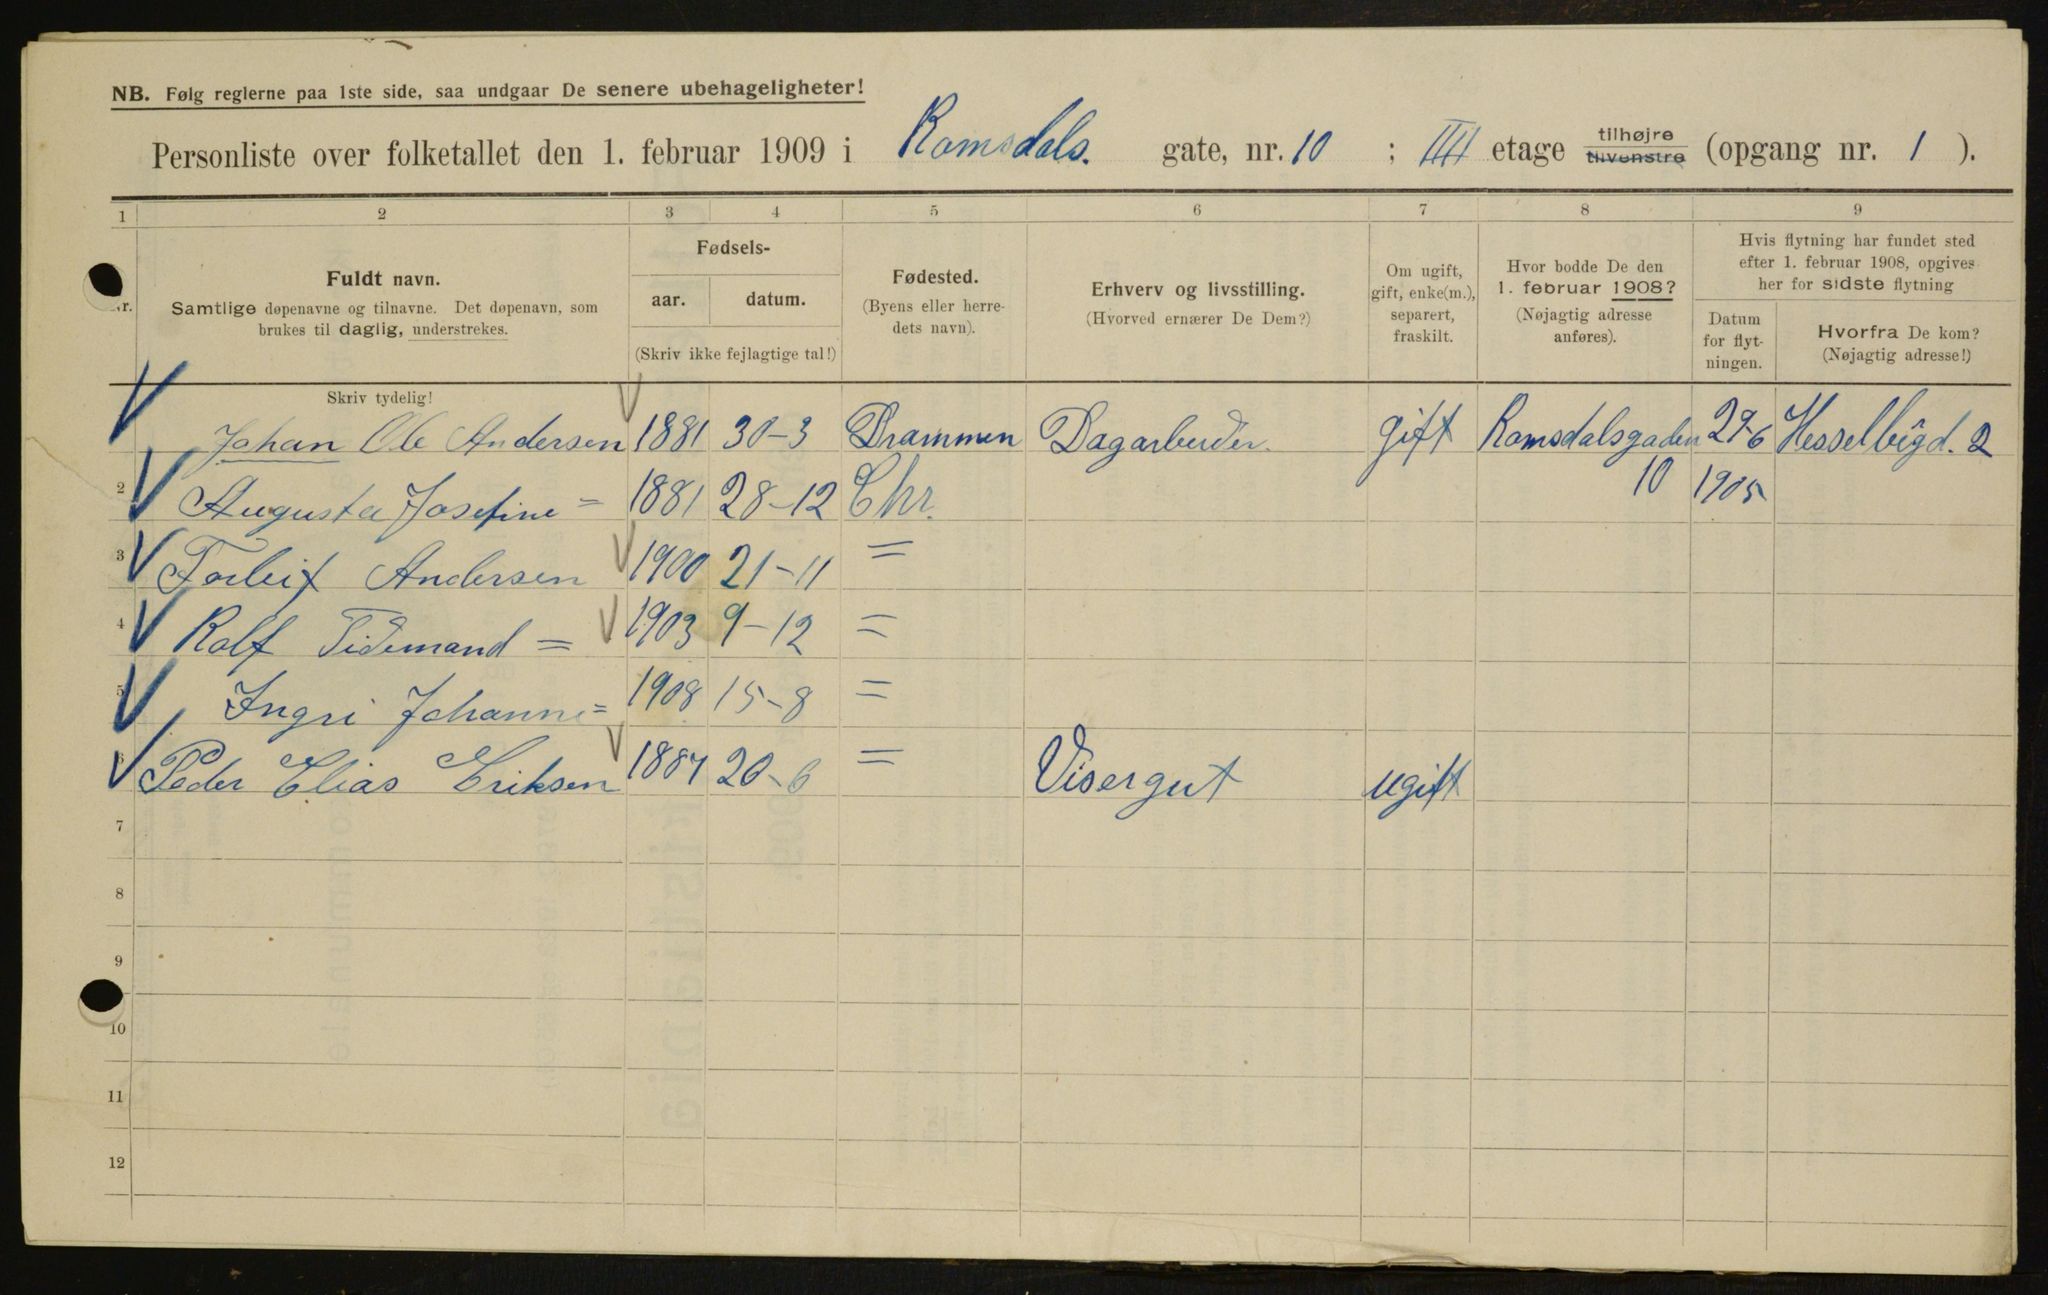 NB. Følg reglerne paa 1ste side, saa undgaar De senere ubehageligheter!
Personliste over folketallet den 1. februar 1909 i Romsdals. gate, nr. 10 ; IIII etage tilhøjre tilvenstre (opgang nr. 1 ).
1 2 3 4 5 6 7 8 9
Nr. Fuldt navn. Samtlige døpenavne og tilnavne. Det døpenavn, som brukes til daglig, understrekes.
Fødsels- aar. datum. (Skriv ikke fejlagtige tal!)
Fødested. (Byens eller herredets navn).
Erhverv og livsstilling. (Hvorved ernærer De Dem?)
Om ugift, gift, enke(m.), separert, fraskilt.
Hvor bodde De den 1. februar 1908? (Nøjagtig adresse anføres).
Hvis flytning har fundet sted efter 1. februar 1908, opgives her for sidste flytning
Datum for flytningen. Hvorfra De kom? (Nøjagtig adresse!)
Skriv tydelig!
Johan Ole Andersen 1881 30-3 Drammen Dagarbeider. gift Romsdalsgaden 29-6 Hesselbigd. 2
2 Augusta Josefine = 1881 28-12 Chr. 10 1905
3 Torleif Andersen 1900 21-11 =
4 Rolf Tidemand = 1903 9-12 =
5 Ingri Johanne = 1908 15-8 =
6 Peder Elias Eriksen 1887 20-6 = Visergut ugift
7
8
9
10
11
12